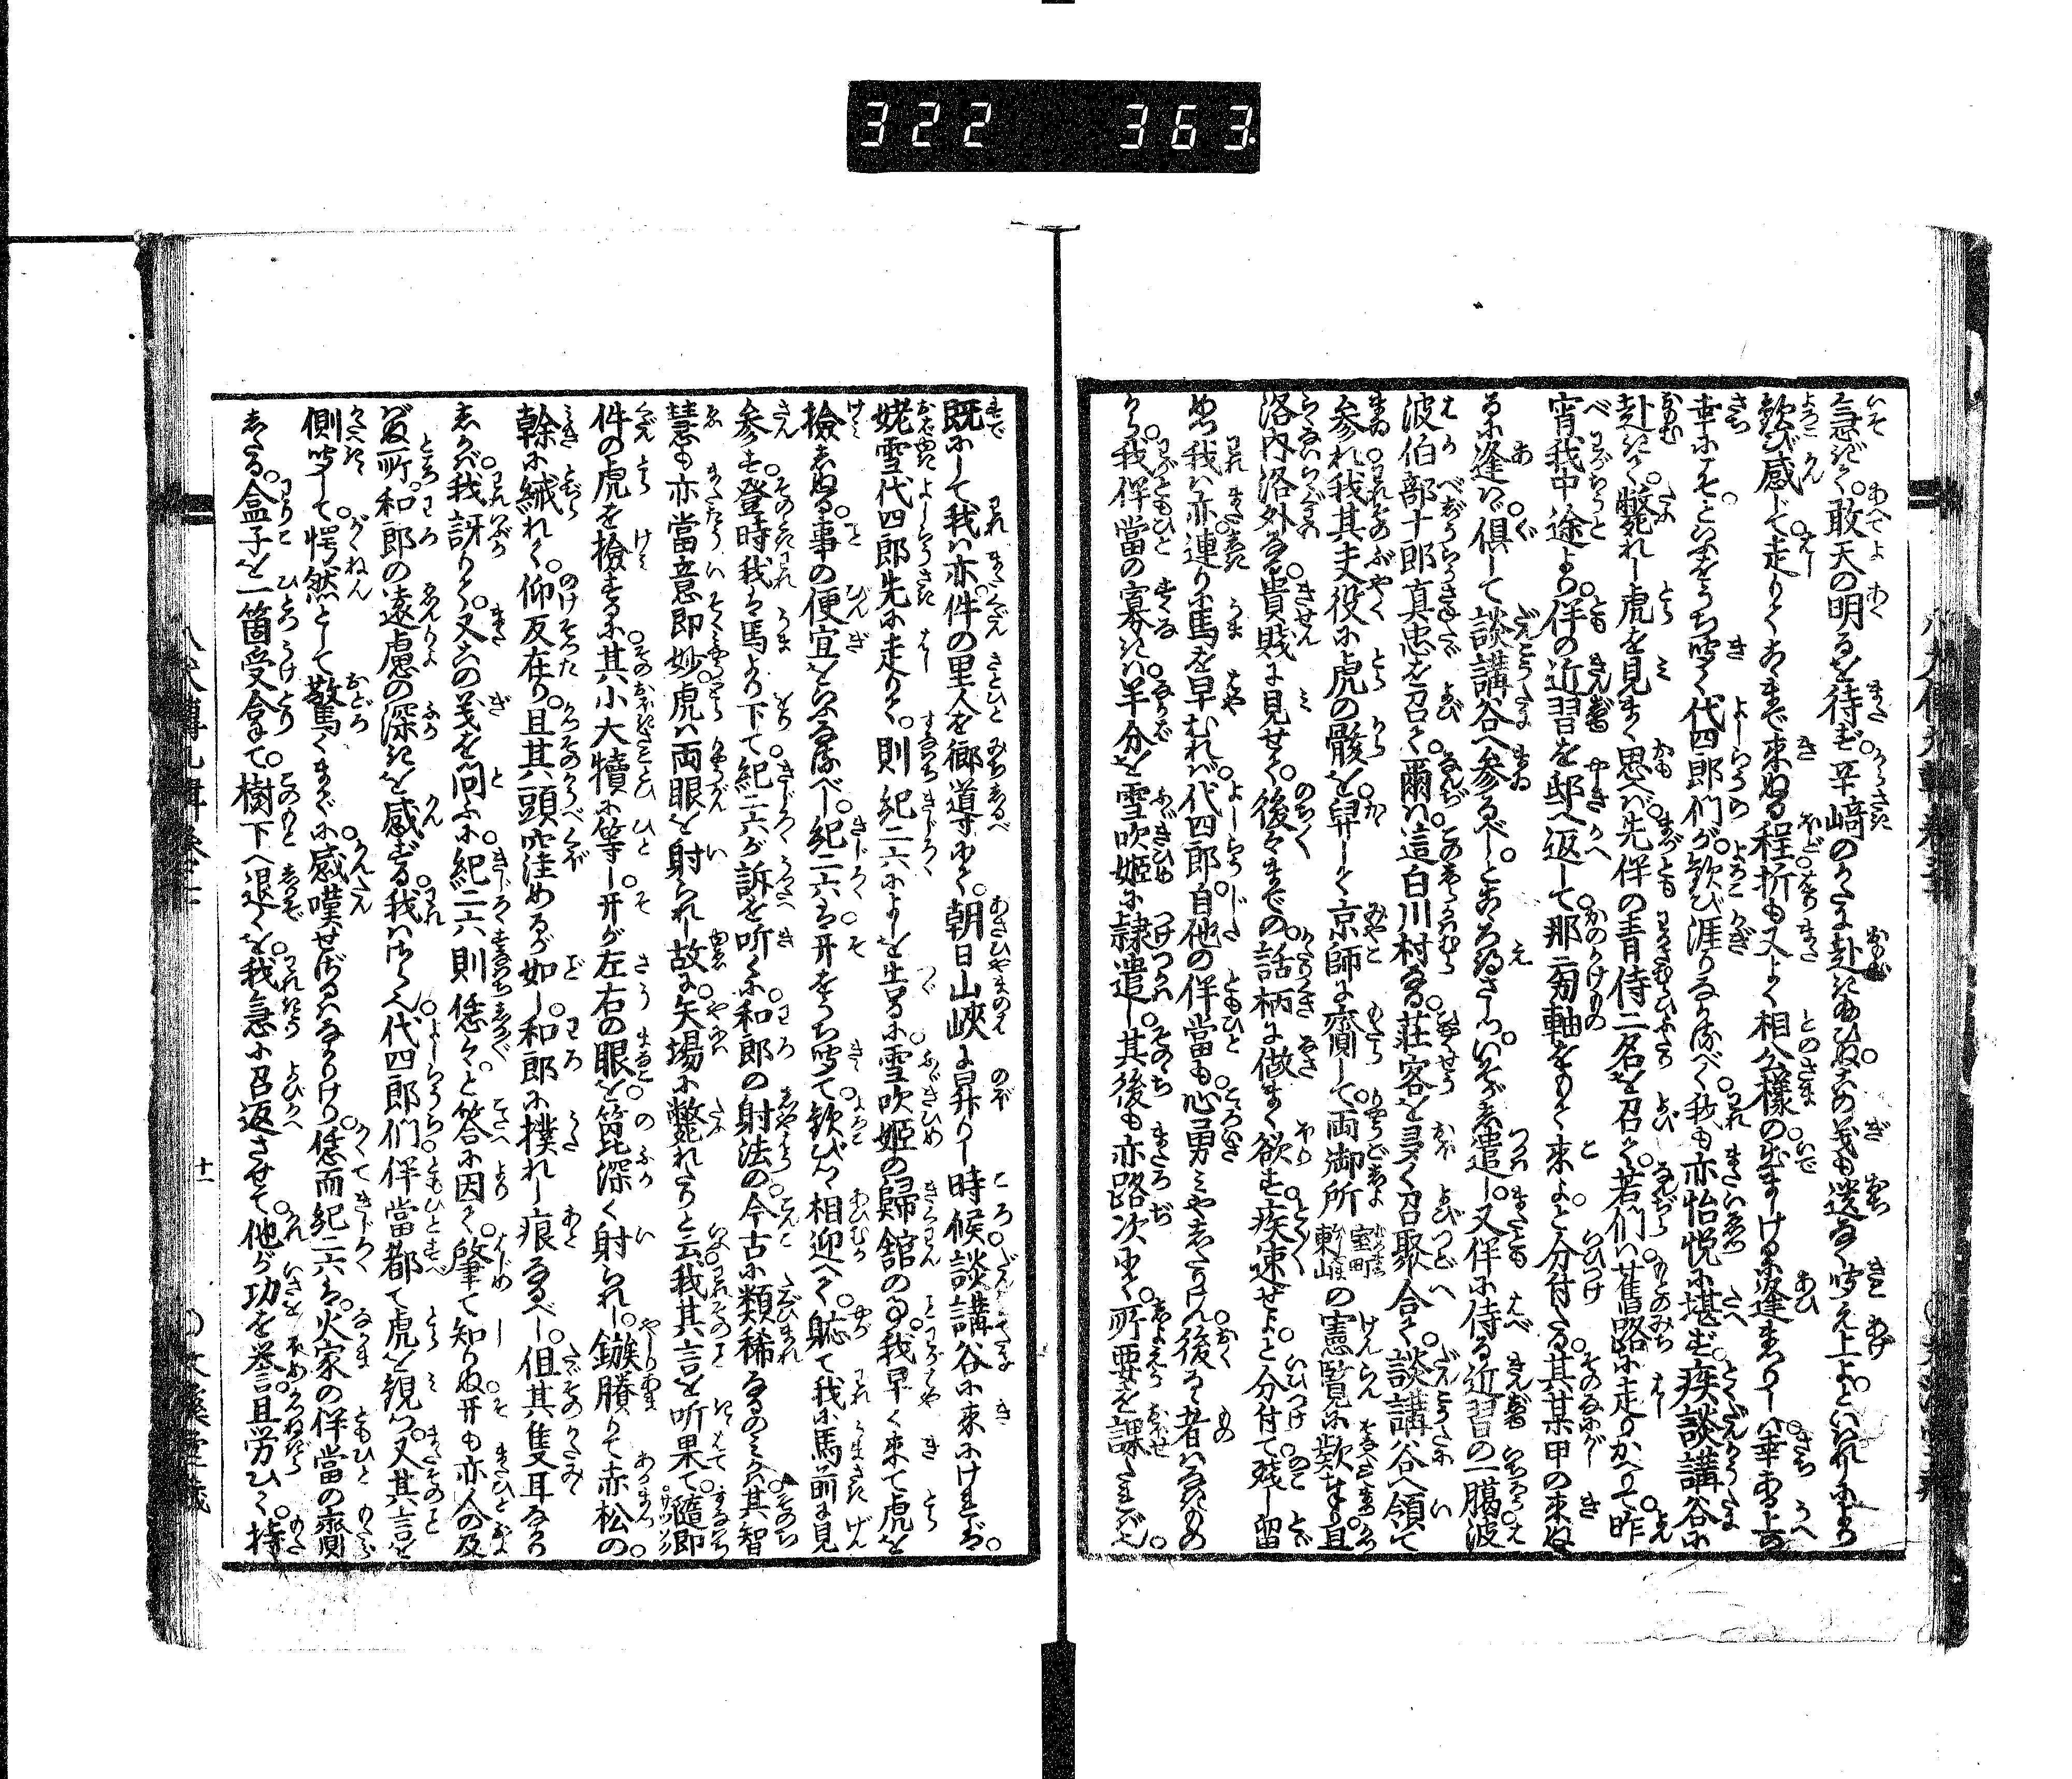 322 363
急ぎて敢天の明るを待ず辛﨑のかたに赴きぬひぬこの義も送なく聞え上よといれしにより
歓び感じて走りてこゝまで來ぬる程折も又よく相公樣の出ましけるに逢まつりしハ幸ある上の
幸にこそといふをうち聞く代四郎們が歓び涯りなかるべく我も亦怡悦に堪ず疾談講谷に
赴きて斃れし虎を見まく思へバ先伴の青侍二名を召て若們ハ舊路に走りかへりて昨
宵我中途より伴の近習を邸へ返して那一匂軸をもて來よと分付たる其某甲の來ぬ
るに逢バ倶して談講谷へ参るべしとこゝろ得さしいそがし遣し又伴に侍る近習の一﨟波
波伯部十郎真忠を召て爾ハ這白川村なる荘客を多く召聚合て談講谷へ領て
参れ我其夫役に虎の骸を舁して京師に齎して両御所室町東山の憲覧に歎まつり且
洛内洛外なる貴賎に見せて後々までの話柄に做まく欲す疾速せよと分付て残し留
めつ我ハ亦連りに馬を早むれバ代四郎自他の伴當も心勇みやしたりけん後るゝ者ハなきものゝ
から我伴當の寡きハ半分を雪吹姫に隷遣しし其後も亦路次にて所要を課たれバ也
既にして我ハ亦件の里人を郷導にて朝日山峽に昇りし時候談講谷に來にけれバ
姥雪代四郎先に走りて則紀二六によしを告るに雪吹姫の歸舘の事我早く來て虎を
檢しぬる事の便宜をいふなるべし紀二六ハ开をうち聞て歓びつゝ相迎へて躯て我に馬前に見
参す登時我ハ馬より下て紀二六が訴を听くに和郎の射法の今古に類稀なるのミか其智
慧も亦當意即妙虎ハ両眼を射られし故に矢場に斃れたりと云我其言を听果て隨即
件の虎を檢するに其小大犢に等し开が左右の眼を箆深く射られし鏃賸りて赤松の
幹に緘れて仰反在り且其頭窪めるが如し和郎に撲れし痕なるべし但其隻耳なかり
しかバ我訝りて又この義を問ふに紀二六則恁々と答に因て肇て知りぬ开も亦人の及
ばぬ所和郎の遠慮の深きを感ずる我ハさらへ代四郎們伴當都て虎を観つ又其言を
側聞して愕然として驚くまでに感嘆せざるハなかりけり恁而紀二六ハ火家の伴當の齎
したる盒子を一箇受拿て樹下へ退くを我急に召返させて他が功を誉且労ひて持
十一